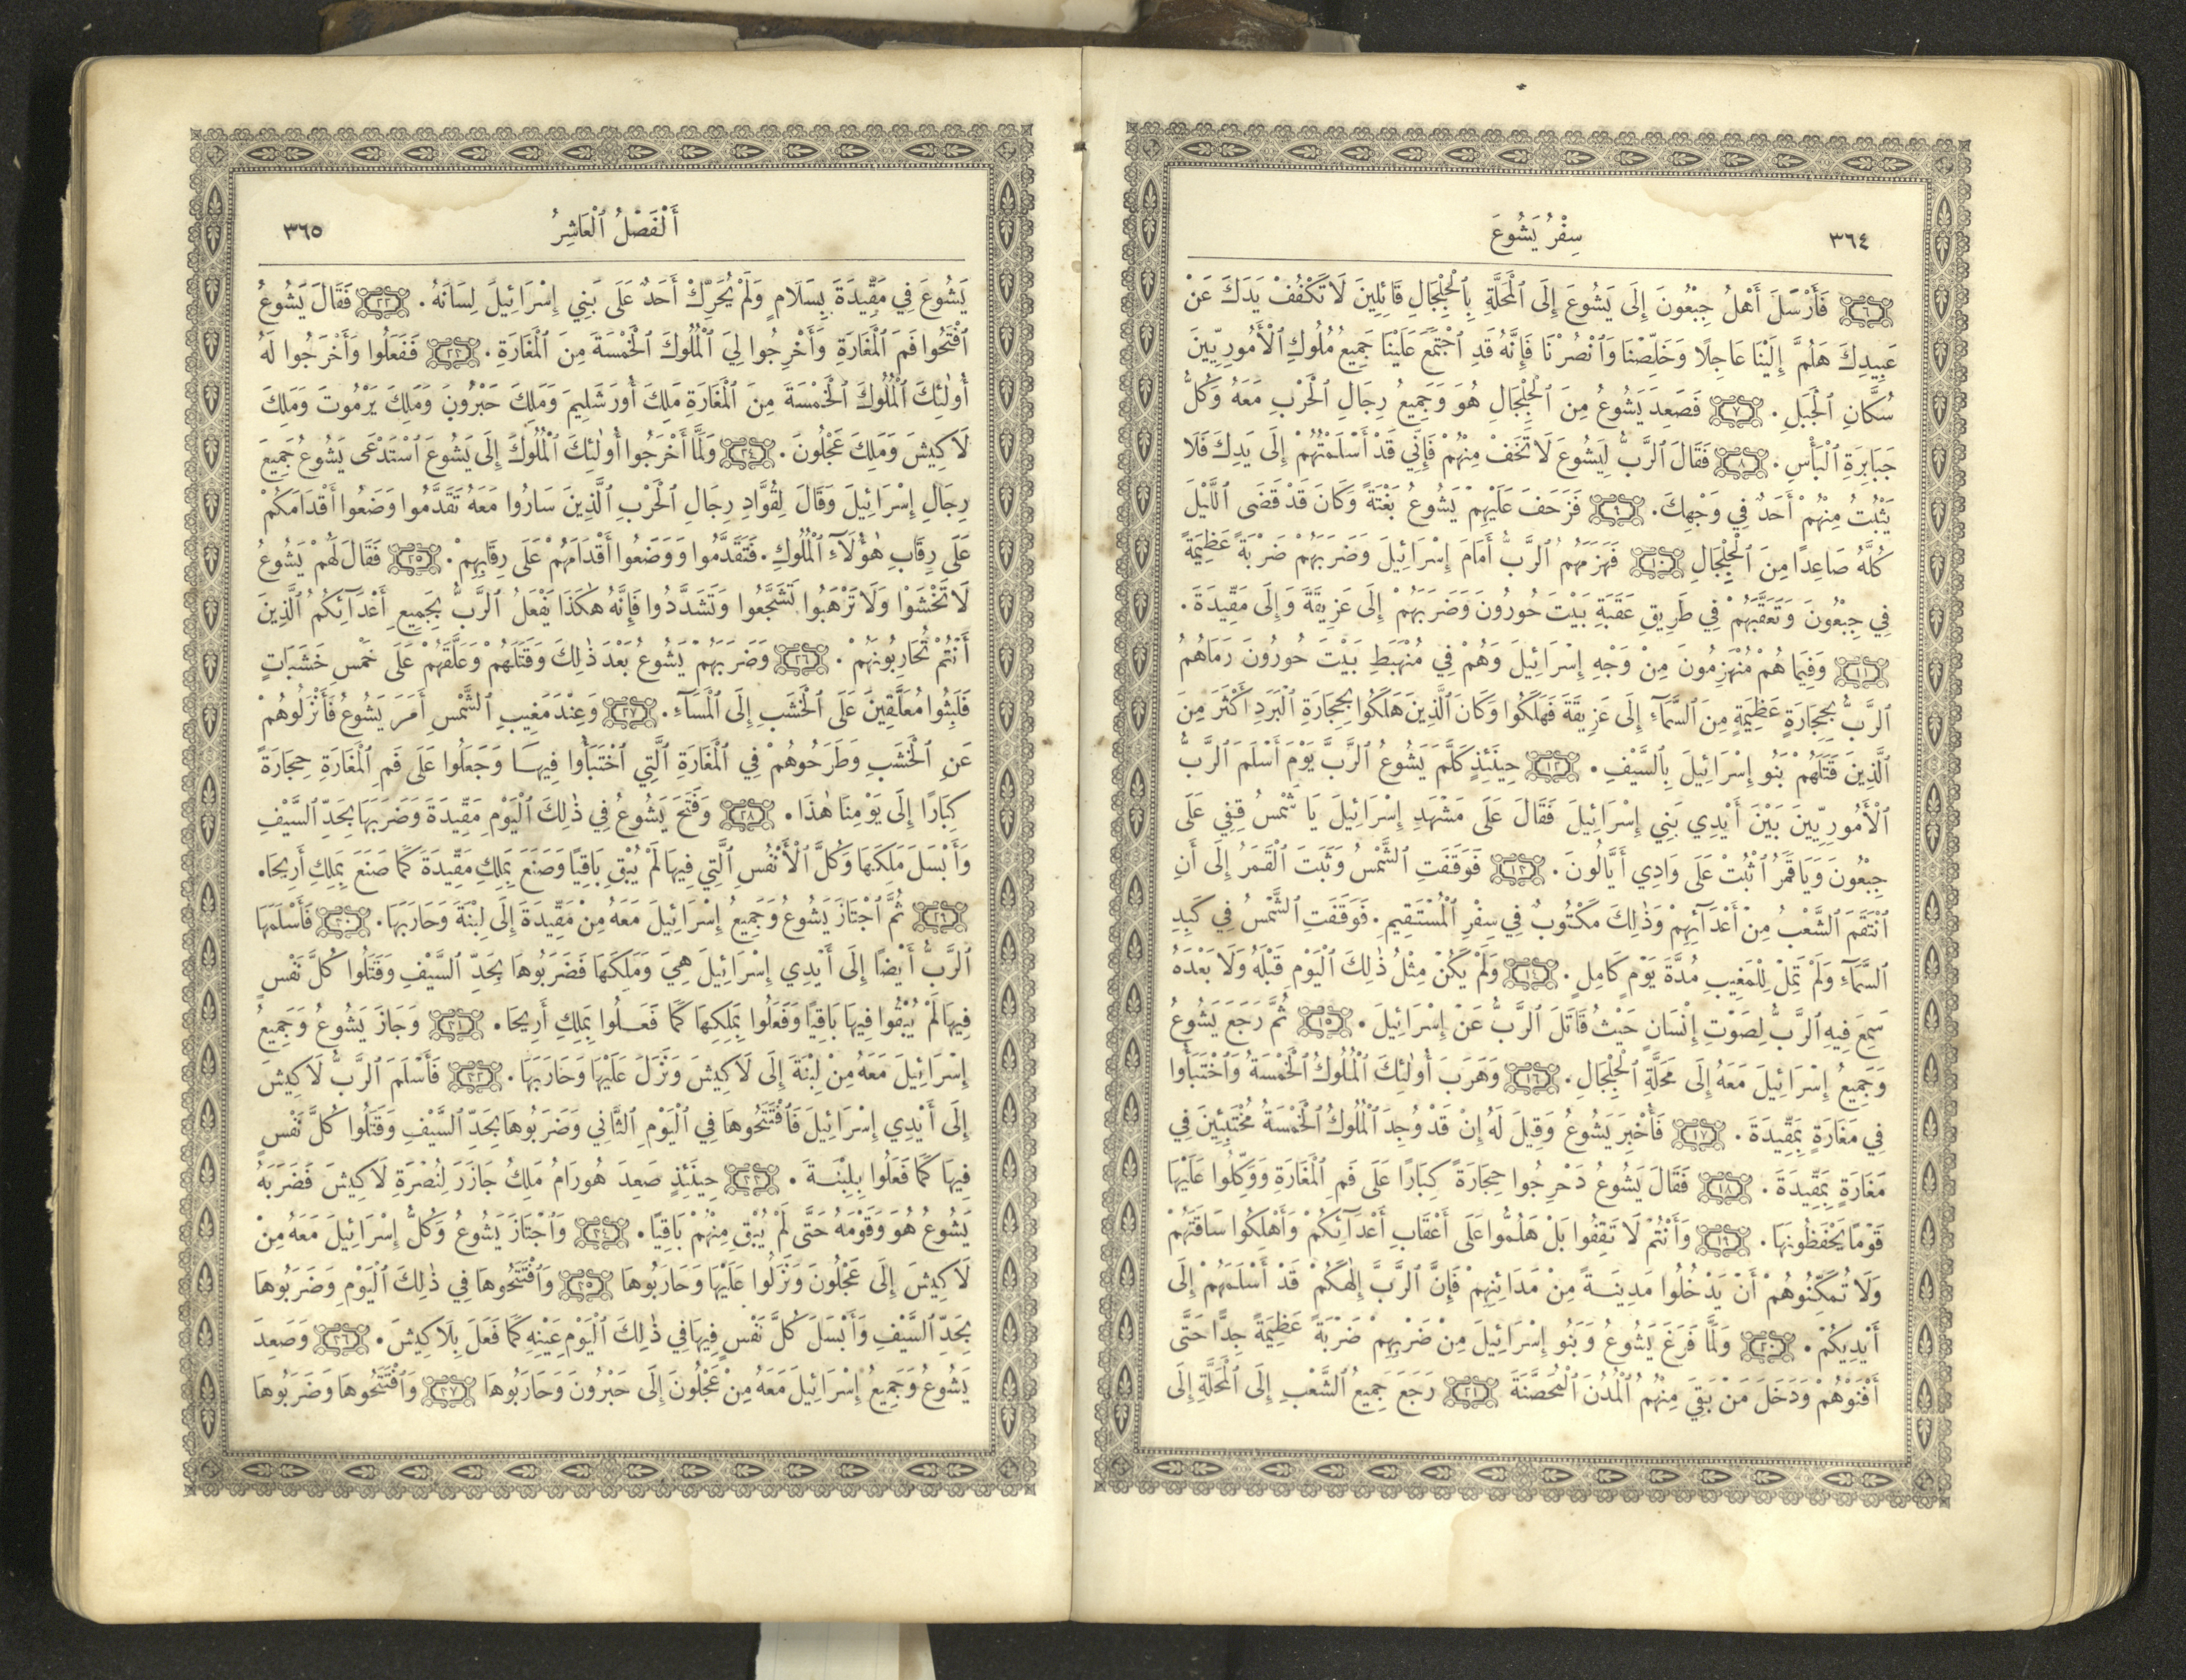 ٣٦٤
سِفْرُ يَشُوعَ
٦ فَأَرْسَلَ أَهْلُ جِبْعُونَ إِلَى يَشُوعَ إِلَى ٱلْمَحَلَّةِ بِٱلْجِلْجَالِ قَائِلِينَ لَا تَكْفُفْ يَدَكَ عَنْ
عَبِيدِكَ هَلُمَّ إِلَيْنَا عَاجِلًا وَخَلِّصْنَا وَٱنْصُرْنَا فَإِنَّهُ قَدِ ٱجْتَمَعَ عَلَيْنَا جَمِيعُ مُلُوكِ ٱلْأَمُورِيِّينَ
سُكَّانِ ٱلْجَبَلِ. ٧ فَصَعِدَ يَشُوعُ مِنَ ٱلْجِلْجَالِ هُوَ وَجَمِيعُ رِجَالِ ٱلْحَرْبِ مَعَهُ وَكُلُّ
جَبَابِرَةِ ٱلْبَأْسِ. ٨ فَقَالَ ٱلرَّبُّ لِيَشُوعَ لَا تَخَفْ مِنْهُمْ فَإِنِّي قَدْ أَسْلَمْتُهُمْ إِلَى يَدِكَ فَلَا
يَثْبُتُ مِنْهُمْ أَحَدٌ فِي وَجْهِكَ. ٩ فَزَحَفَ عَلَيْهِمْ يَشُوعُ بَغْتَةً وَكَانَ قَدْ قَضَى ٱللَّيْلَ
كُلَّهُ صَاعِدًا مِنَ ٱلْجِلْجَالِ ١٠ فَهَزَمَهُمُ ٱلرَّبُّ أَمَامَ إِسْرَائِيلَ وَضَرَبَهُمْ ضَرْبَةً عَظِيمَةً
فِي جِبْعُونَ وَتَعَقَّبَهُمْ فِي طَرِيقِ عَقَبَةِ بَيْتَ حُورُونَ وَضَرَبَهُمْ إِلَى عَزِيقَةَ وَإِلَى مَقِّيدَةَ.
١١ وَفِيمَا هُمْ مُنْهَزِمُونَ مِنْ وَجْهِ إِسْرَائِيلَ وَهُمْ فِي مُنْهَبَطِ بَيْتَ حُورُونَ رَمَاهُمُ
ٱلرَّبُّ بِحِجَارَةٍ عَظِيمَةٍ مِنَ ٱلسَّمَآءِ إِلَى عَزِيقَةَ فَهَلَكُوا وَكَانَ ٱلَّذِينَ هَلَكُوا بِحِجَارَةِ ٱلْبَرَدِ أَكْثَرَ مِنَ
ٱلَّذِينَ قَتَلَهُمْ بَنُو إِسْرَائِيلَ بِٱلسَّيْفِ. ١٢ حِينَئِذٍ كَلَّمَ يَشُوعُ ٱلرَّبَّ يَوْمَ أَسْلَمَ ٱلرَّبُّ
ٱلْأَمُورِيِّينَ بَيْنَ أَيْدِي بَنِي إِسْرَائِيلَ فَقَالَ عَلَى مَشْهَدِ إِسْرَائِيلَ يَا شَمْسُ قِفِي عَلَى
جِبْعُونَ وَيَا قَمَرُ ٱثْبُتْ عَلَى وَادِي أَيَّالُونَ. ١٣ فَوَقَفَتِ ٱلشَّمْسُ وَثَبَتَ ٱلْقَمَرُ إِلَى أَنِ
ٱنْتَقَمَ ٱلشَّعْبُ مِنْ أَعْدَآئِهِمْ وَذٰلِكَ مَكْتُوبٌ فِي سِفْرِ ٱلْمُسْتَقِيمِ. فَوَقَفَتِ ٱلشَّمْسُ فِي كَبِدِ
ٱلسَّمَآءِ وَلَمْ تَمِلْ لِلْمَغِيبِ مُدَّةَ يَوْمٍ كَامِلٍ. ١٤ وَلَمْ يَكُنْ مِثْلُ ذٰلِكَ ٱلْيَوْمِ قَبْلَهُ وَلَا بَعْدَهُ
سَمِعَ فِيهِ ٱلرَّبُّ لِصَوْتِ إِنْسَانٍ حَيْثُ قَاتَلَ ٱلرَّبُّ عَنْ إِسْرَائِيلَ. ١٥ ثُمَّ رَجَعَ يَشُوعُ
وَجَمِيعُ إِسْرَائِيلَ مَعَهُ إِلَى مَحَلَّةِ ٱلْجِلْجَالِ. ١٦ وَهَرَبَ أُولٰئِكَ ٱلْمُلُوكُ ٱلْخَمْسَةُ وَٱخْتَبَأُوا
فِي مَغَارَةٍ بِمَقِّيدَةَ. ١٧ فَأُخْبِرَ يَشُوعُ وَقِيلَ لَهُ إِنْ قَدْ وُجِدَ ٱلْمُلُوكُ ٱلْخَمْسَةُ مُخْتَبِئِينَ فِي
مَغَارَةٍ بِمَقِّيدَةَ. ١٨ فَقَالَ يَشُوعُ دَحْرِجُوا حِجَارَةً كِبَارًا عَلَى فَمِ ٱلْمَغَارَةِ وَوَكِّلُوا عَلَيْهَا
قَوْمًا يَحْفَظُونَهَا. ١٩ وَأَنْتُمْ لَا تَقِفُوا بَلْ هَلُمُّوا عَلَى أَعْقَابِ أَعْدَآئِكُمْ وَأَهْلِكُوا سَاقَتَهُمْ
وَلَا تُمَكِّنُوهُمْ أَنْ يَدْخُلُوا مَدِينَةً مِنْ مَدَائِنِهِمْ فَإِنَّ ٱلرَّبَّ إِلٰهَكُمْ قَدْ أَسْلَمَهُمْ إِلَى
أَيْدِيكُمْ. ٢٠ وَلَمَّا فَرَغَ يَشُوعُ وَبَنُو إِسْرَائِيلَ مِنْ ضَرْبِهِمْ ضَرْبَةً عَظِيمَةً جِدًّا حَتَّى
أَفْنَوْهُمْ وَدَخَلَ مَنْ بَقِيَ مِنْهُمُ ٱلْمُدُنَ ٱلْمُحَصَّنَةَ ٢١ رَجَعَ جَمِيعُ ٱلشَّعْبِ إِلَى ٱلْمَحَلَّةِ إِلَى
أَلْفَصْلُ ٱلْعَاشِرُ
٣٦٥
يَشُوعَ فِي مَقِّيدَةَ بِسَلَامٍ وَلَمْ يُحَرِّكْ أَحَدٌ عَلَى بَنِي إِسْرَائِيلَ لِسَانَهُ. ٢٢ فَقَالَ يَشُوعُ
ٱفْتَحُوا فَمَ ٱلْمَغَارَةِ وَأَخْرِجُوا لِيَ ٱلْمُلُوكَ ٱلْخَمْسَةَ مِنَ ٱلْمَغَارَةِ. ٢٣ فَفَعَلُوا وَأَخْرَجُوا لَهُ
أُولٰئِكَ ٱلْمُلُوكَ ٱلْخَمْسَةَ مِنَ ٱلْمَغَارَةِ مَلِكَ أُورَشَلِيمَ وَمَلِكَ حَبْرُونَ وَمَلِكَ يَرْمُوتَ وَمَلِكَ
لَاكِيشَ وَمَلِكَ عَجْلُونَ. ٢٤ وَلَمَّا أَخْرَجُوا أُولٰئِكَ ٱلْمُلُوكَ إِلَى يَشُوعَ ٱسْتَدْعَى يَشُوعُ جَمِيعَ
رِجَالِ إِسْرَائِيلَ وَقَالَ لِقُوَّادِ رِجَالِ ٱلْحَرْبِ ٱلَّذِينَ سَارُوا مَعَهُ تَقَدَّمُوا وَضَعُوا أَقْدَامَكُمْ
عَلَى رِقَابِ هٰؤُلَآءِ ٱلْمُلُوكِ. فَتَقَدَّمُوا وَوَضَعُوا أَقْدَامَهُمْ عَلَى رِقَابِهِمْ. ٢٥ فَقَالَ لَهُمْ يَشُوعُ
لَا تَخْشَوْا وَلَا تَرْهَبُوا تَشَجَّعُوا وَتَشَدَّدُوا فَإِنَّهُ هٰكَذَا يَفْعَلُ ٱلرَّبُّ بِجَمِيعِ أَعْدَآئِكُمُ ٱلَّذِينَ
أَنْتُمْ تُحَارِبُونَهُمْ. ٢٦ وَضَرَبَهُمْ يَشُوعُ بَعْدَ ذٰلِكَ وَقَتَلَهُمْ وَعَلَّقَهُمْ عَلَى خَمْسِ خَشَبَاتٍ
فَلَبِثُوا مُعَلَّقِينَ عَلَى ٱلْخَشَبِ إِلَى ٱلْمَسَآءِ. ٢٧ وَعِنْدَ مَغِيبِ ٱلشَّمْسِ أَمَرَ يَشُوعُ فَأَنْزَلُوهُمْ
عَنِ ٱلْخَشَبِ وَطَرَحُوهُمْ فِي ٱلْمَغَارَةِ ٱلَّتِي ٱخْتَبَأُوا فِيهَا وَجَعَلُوا عَلَى فَمِ ٱلْمَغَارَةِ حِجَارَةً
كِبَارًا إِلَى يَوْمِنَا هٰذَا. ٢٨ وَفَتَحَ يَشُوعُ فِي ذٰلِكَ ٱلْيَوْمِ مَقِّيدَةَ وَضَرَبَهَا بِحَدِّ ٱلسَّيْفِ
وَأَبْسَلَ مَلِكَهَا وَكُلَّ ٱلْأَنْفُسِ ٱلَّتِي فِيهَا لَمْ يُبْقِ بَاقِيًا وَصَنَعَ بِمَلِكِ مَقِّيدَةَ كَمَا صَنَعَ بِمَلِكِ أَرِيحَا.
٢٩ ثُمَّ ٱجْتَازَ يَشُوعُ وَجَمِيعُ إِسْرَائِيلَ مَعَهُ مِنْ مَقِّيدَةَ إِلَى لِبْنَةَ وَحَارَبَهَا. ٣٠ فَأَسْلَمَهَا
ٱلرَّبُّ أَيْضًا إِلَى أَيْدِي إِسْرَائِيلَ هِيَ وَمَلِكَهَا فَضَرَبُوهَا بِحَدِّ ٱلسَّيْفِ وَقَتَلُوا كُلَّ نَفْسٍ
فِيهَا لَمْ يُبْقُوا فِيهَا بَاقِيًا وَفَعَلُوا بِمَلِكِهَا كَمَا فَعَلُوا بِمَلِكِ أَرِيحَا. ٣١ وَجَازَ يَشُوعُ وَجَمِيعُ
إِسْرَائِيلَ مَعَهُ مِنْ لِبْنَةَ إِلَى لَاكِيشَ وَنَزَلَ عَلَيْهَا وَحَارَبَهَا. ٣٢ فَأَسْلَمَ ٱلرَّبُّ لَاكِيشَ
إِلَى أَيْدِي إِسْرَائِيلَ فَٱفْتَتَحُوهَا فِي ٱلْيَوْمِ ٱلثَّانِي وَضَرَبُوهَا بِحَدِّ ٱلسَّيْفِ وَقَتَلُوا كُلَّ نَفْسٍ
فِيهَا كَمَا فَعَلُوا بِلِبْنَةَ. ٣٣ حِينَئِذٍ صَعِدَ هُورَامُ مَلِكُ جَازَرَ لِنُصْرَةِ لَاكِيشَ فَضَرَبَهُ
يَشُوعُ هُوَ وَقَوْمَهُ حَتَّى لَمْ يُبْقِ مِنْهُمْ بَاقِيًا. ٣٤ وَٱجْتَازَ يَشُوعُ وَكُلُّ إِسْرَائِيلَ مَعَهُ مِنْ
لَاكِيشَ إِلَى عَجْلُونَ وَنَزَلُوا عَلَيْهَا وَحَارَبُوهَا ٣٥ وَٱفْتَتَحُوهَا فِي ذٰلِكَ ٱلْيَوْمِ وَضَرَبُوهَا
بِحَدِّ ٱلسَّيْفِ وَأَبْسَلَ كُلَّ نَفْسٍ فِيهَا فِي ذٰلِكَ ٱلْيَوْمِ عَيْنِهِ كَمَا فَعَلَ بِلَاكِيشَ. ٣٦ وَصَعِدَ
يَشُوعُ وَجَمِيعُ إِسْرَائِيلَ مَعَهُ مِنْ عَجْلُونَ إِلَى حَبْرُونَ وَحَارَبُوهَا ٣٧ وَٱفْتَتَحُوهَا وَضَرَبُوهَا